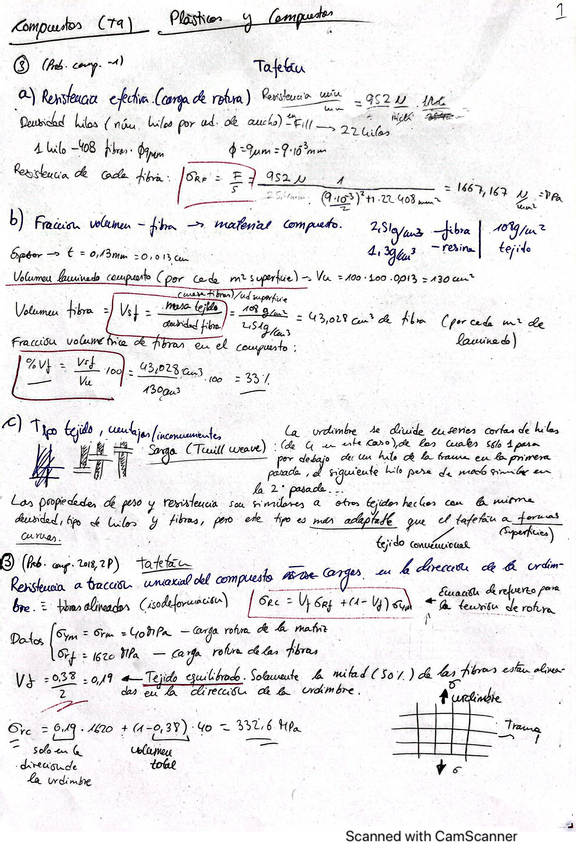 1
Compuestos (T9) Plásticos y Compuestos
③ (Prob. comp. -1) Tafetán
a) Resistencia efectiva. (carga de rotura) Resistencia min/mm = 952 N
Densidad hilos (núm. hilos por ud. de ancho) = Fill → 22 hilos
1 hilo - 408 fibras. φ9μm φ = 9μm = 9·10⁻³mm
Resistencia de cada fibra: σRF = F/S = 952 N / 1 / (9·10⁻³/2)²π·22·408mm² = 1667,167 N/mm² = MPa
b) Fracción volumen - fibra → material compuesto. 2,51g/cm3 - fibra | 108g/m²
Espesor → t = 0,13mm = 0,013cm 1,3g/cm³ - resina | tejido
Volumen laminado compuesto (por cada m² superficie) → Vu = 100·100·0,013 = 130 cm³
(masa fibras)/ud superficie
Volumen fibra = Vsf = masa tejido/densidad fibra = 108 g/m²/2,51g/cm³ = 43,028 cm³ de fibra (por cada m² de laminado)
Fracción volumétrica de fibras en el compuesto:
%Vf = Vsf/Vu · 100 = 43,028cm³/130cm³ · 100 = 33%
c) Tipo tejido, ventajas/inconvenientes
Sarga (Twill weave)
La urdimbre se divide en series cortas de hilos
(de 4 en este caso), de los cuales sólo 1 pasa
por debajo de un hilo de la trama en la primera
pasada, el siguiente hilo pasa de modo similar en
la 2ª pasada...
Las propiedades de peso y resistencia son similares a otros tejidos hechos con la misma
densidad, tipo de hilos y fibras, pero este tipo es más adaptable que el tafetán a formas
curvas. tejido convencional (superficies)
③ (Prob. comp. 2018, 2P) Tafetán
Resistencia a tracción uniaxial del compuesto cargas en la dirección de la urdim-
bre. = fibras alineadas (isodeformación) σRC = Vf σRf + (1-Vf) σym ← Ecuación de refuerzo para
la tensión de rotura
Datos { σym = σrm = 40MPa - carga rotura de la matriz
σrf = 1620 MPa - carga rotura de las fibras
Vf = 0,38/2 = 0,19 ← Tejido equilibrado. Solamente la mitad (50%) de las fibras están alinea-
das en la dirección de la urdimbre.
σ
urdimbre
Trama
σrc = 0,19 · 1620 + (1-0,38) · 40 = 332,6 MPa
solo en la
dirección de
la urdimbre
volumen
total
σ
Scanned with CamScanner